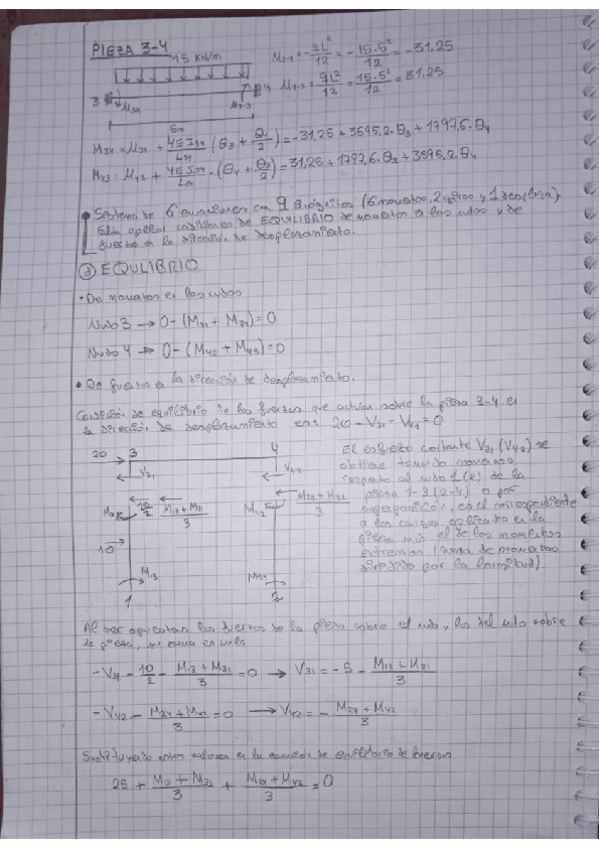 PIEZA 3-4
15 kN/m
M₃₄ = -qL²/12 = -15·5²/12 = -31,25
M₄₋₃ = qL²/12 = 15·5²/12 = 31,25
3
4
M₃₄
M₄₋₃
5m
M₃₄ = M₃₄ + 4EI₃₄/L₃₄ · (θ₃ + θ₄/2) = -31,25 + 3595,2·θ₃ + 1797,6·θ₄
M₄₃ = M₄₃ + 4EI₃₄/L₃₄ · (θ₄ + θ₃/2) = 31,25 + 1797,6·θ₃ + 3595,2·θ₄
• Sistema de 6 ecuaciones con 9 incógnitas (6 momentos, 2 giros y 1 desplaz.)
condiciones de EQUILIBRIO de momentos a los nudos y de
fuerzas en la dirección de desplazamiento.
③ EQUILIBRIO
• De momentos en los nudos
Nudo 3 → 0-(M₃₁ + M₃₄) = 0
Nudo 4 → 0-(M₄₂ + M₄₃) = 0
• De fuerzas en la dirección de desplazamiento.
Condición de equilibrio de las fuerzas que actúan sobre la pieza 3-4 en
la dirección de desplazamiento es: 20 - V₃₁ - V₄₂ = 0
20 → 3
4
V₃₁
V₄₂
M₃₁
10/2
M₁₃ + M₃₁/3
M₄₂
M₂₄ + M₄₂/3
10 →
M₁₃
M₂₄
1
2
El esfuerzo cortante V₃₁ (V₄₂) se
obtiene tomando momentos
respecto al nudo 1 (2) de la
pieza 1-3 (2-4) o por
superposición, es el correspondiente
a las cargas aplicadas en la
pieza más el de los momentos
extremos (suma de momentos
dividido por la longitud).
Al ser opuestas las fuerzas de la pieza sobre el nudo y las del nudo sobre
la pieza,
-V₃₁ - 10/2 - M₁₃ + M₃₁/3 = 0 → V₃₁ = -5 - M₁₃ + M₃₁/3
-V₄₂ - M₂₄ + M₄₂/3 = 0 → V₄₂ = - M₂₄ + M₄₂/3
Sustituyendo estos valores en la ecuación de equilibrio de fuerzas
25 + M₁₃ + M₃₁/3 + M₂₄ + M₄₂/3 = 0